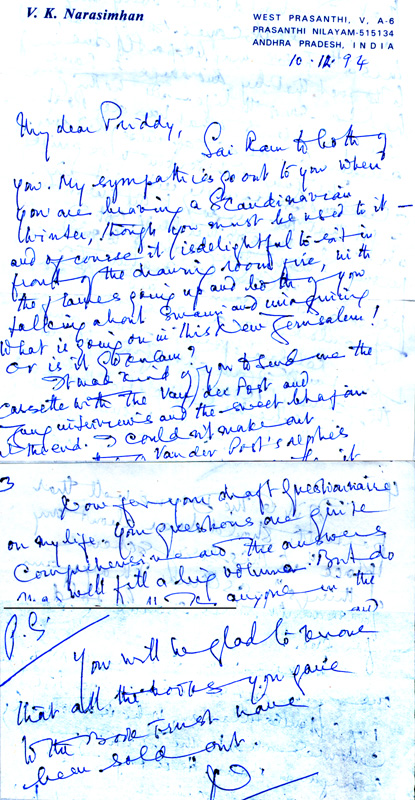 V. K. Narasimhan
WEST PRASANTHI, V, A-6
PRASANTHI NILAYAM-515134
ANDHRA PRADESH, INDIA
10.12.94
My dear Priddy,
Sai Ram to both of
you. My sympathies go out to you when
you are braving a Scandinavian
Winter, though you must be used to it —
and of course it is delightful to sit in
front of the drawing room fire, with
the flames going up and both of you
talking about Swami and imagining
What is going on in this New Jerusalem!
Or is it
It was kind of you to send me the
cassette with the Van der Post and
Jung interviews and the sweet bhajan
at the end. I couldn't make out
Van der Post's
it
3
Now for your draft Questionnaire
on my life. Your questions are quite
Comprehensive and the answers
may well fill a big volume. But do
anyone in the
and
P.S.
You will be glad to know
that all the books you gave
to the Book Trust have
been sold out.